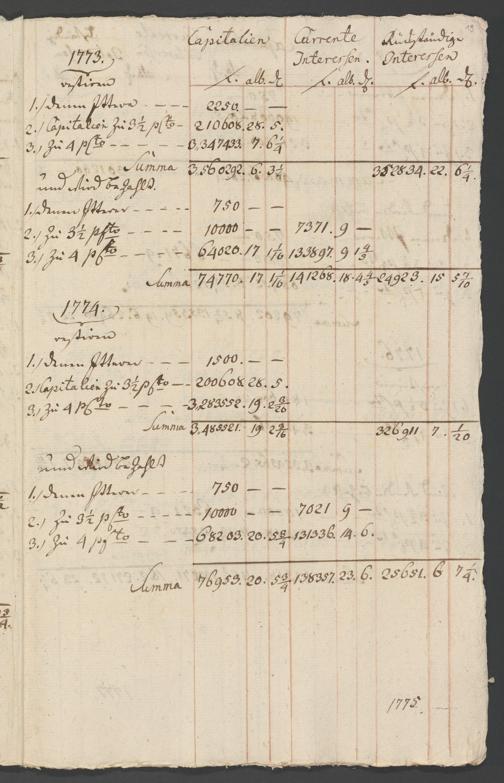 Capitalien Currente Interessen. Ruckständige Interessen
1773.
restiren
f. alb. ₰. f. alb. ₰. f. alb. ₰.
1.) denen Ittern - - - 2250. — —
2.) Capitalien zu 3½ p Cto - 210608. 28. 5.
3.) zu 4 p Cto - - - 3,347433. 7. 6¼
Summa 3,560292. 6. 3¼ 352834. 22. 6¼.
und wird bezahlt.
1.) denen Ittern - - - 750 — —
2.) zu 3½ p Cto - - - 10000 — — 7371. 9 —
3.) zu 4 p Cto - - - 64020. 17 1/10 133897. 9 4
Summa 74770. 17 1/10 141268. 18. 4 24923. 15 5
1774.
restiren
1.) denen Ittern - - - 1500. — —
2. Capitalien zu 3½ p Cto - 200608. 28. 5.
3.) zu 4 p Cto - - - 3,283552. 19. 2
Summa 3,485521. 19 2 326911 7. 1/20
und wird bezahlt
1.) denen Ittern - - - 750 — —
2.) zu 3½ p Cto - - - 10000 — — 7021 9 —
3.) zu 4 p Cto - - - 68203. 20. 5¾ 131336. 14. 6.
Summa 76953. 20. 5¾ 138357. 23. 6. 25651. 6 7¼.
1775.